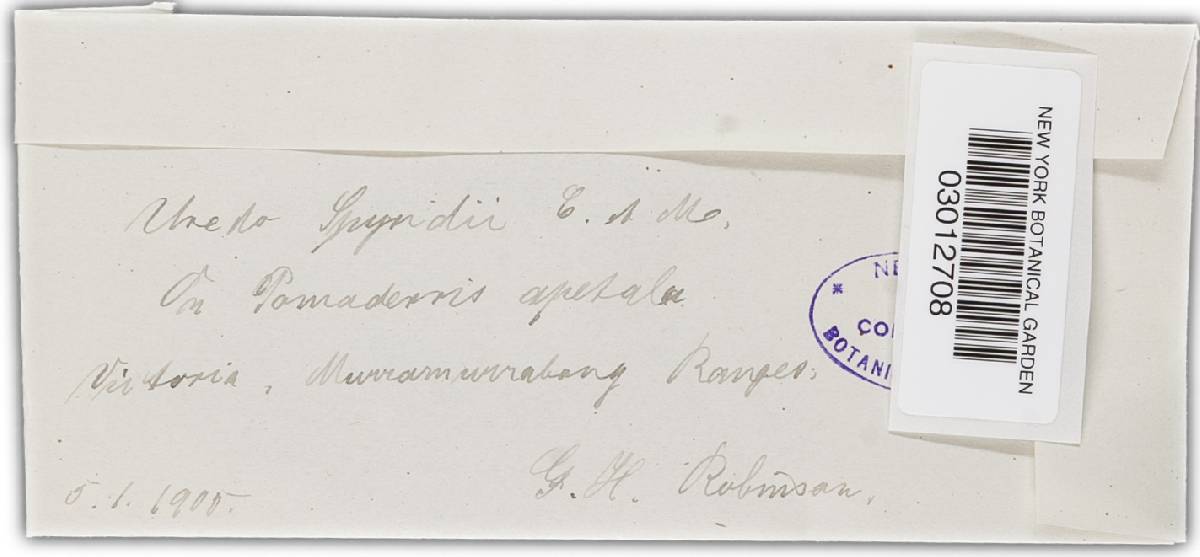 Uredo Spyridii C. & M.
On Pomaderris apetala
Victoria, Murramurrabong Ranges,
G. H. Robinson.
5.1.1900.
NEW YORK BOTANICAL GARDEN
03012708
NE
CO
BOTANI